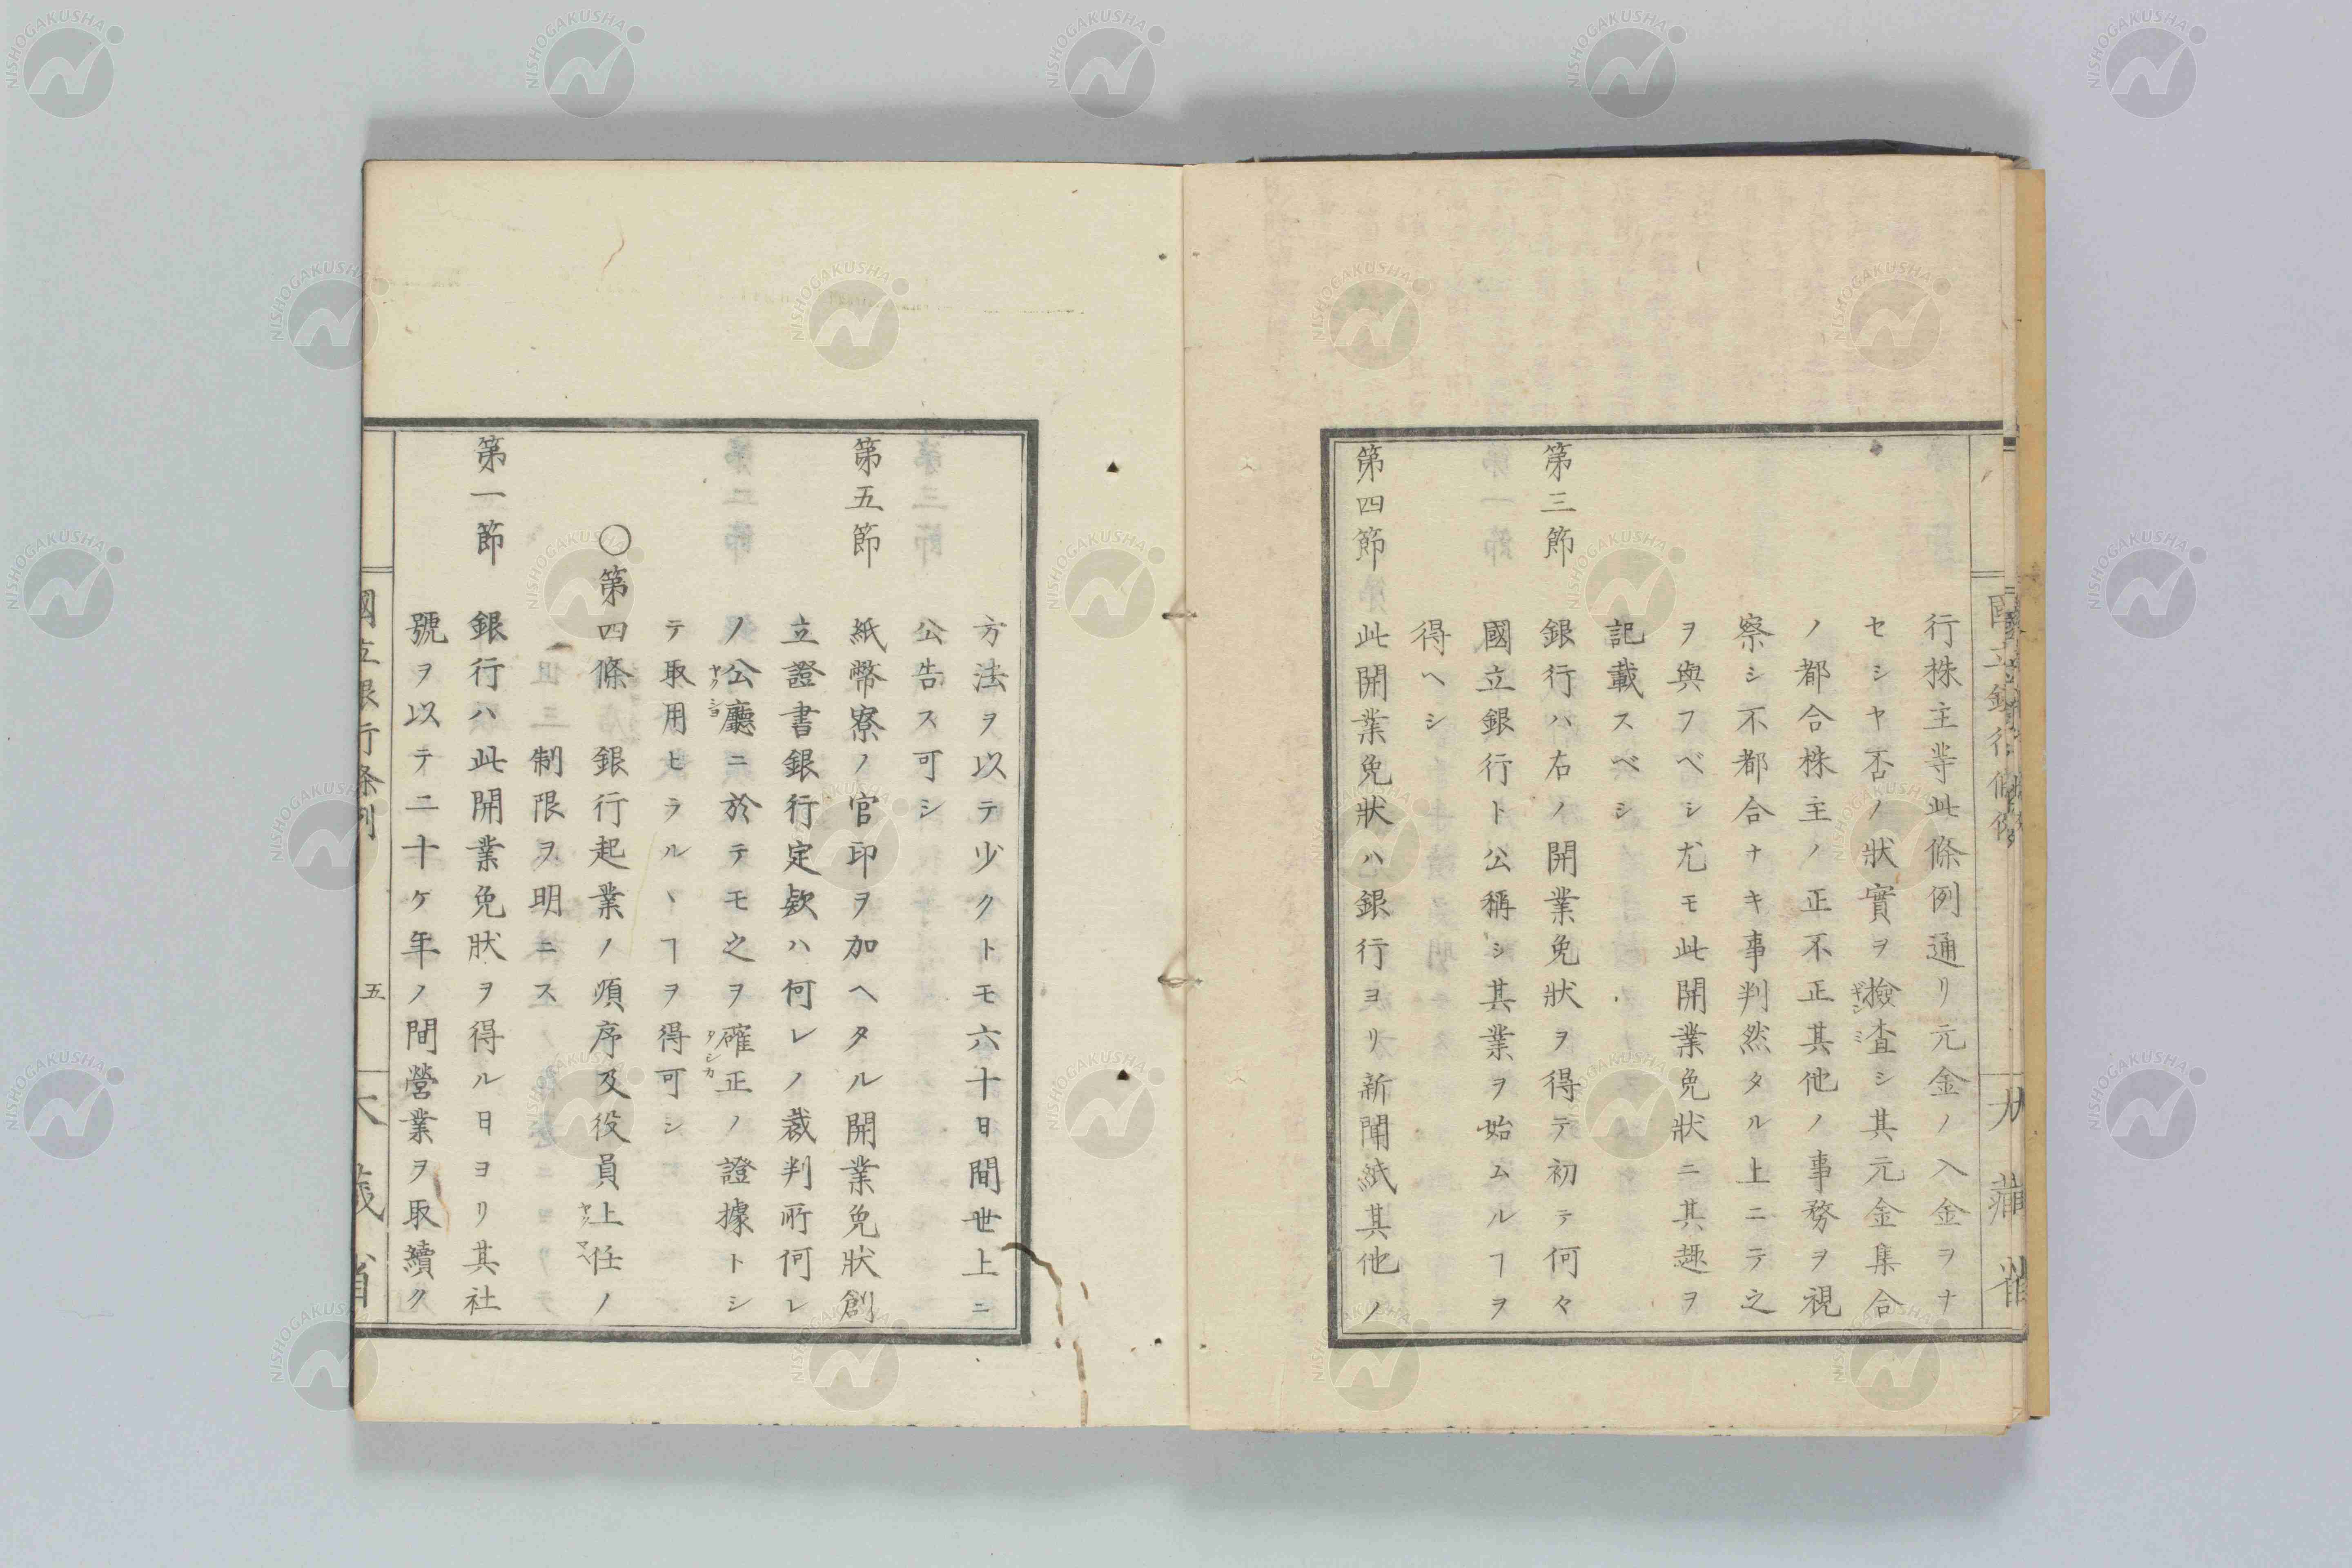 行株主等此條例通リ元金ノ入金ヲナ
セシヤ否ノ狀實ヲ撿査シ其元金集合
ギンミ
ノ都合株主ノ正不正其他ノ事務ヲ視
察シ不都合ナキ事判然タル上ニテ之
ヲ與フベシ尤モ此開業免狀ニ其趣ヲ
記載スベシ
第三節 銀行ハ右ノ開業免狀ヲ得テ初テ何々
國立銀行ト公稱シ其業ヲ始ムルヿヲ
得ヘシ
第四節 此開業免狀ハ銀行ヨリ新聞紙其他ノ
方法ヲ以テ少クトモ六十日間世上ニ
公告ス可シ
第五節 紙幣寮ノ官印ヲ加ヘタル開業免狀創
立證書銀行定欵ハ何レノ裁判所何レ
ノ公廳ニ於テモ之ヲ確正ノ證據トシ
ヤクシヨ
タシカ
テ取用ヒラルヽヿヲ得可シ
〇第四條 銀行起業ノ順序及役員上任ノ
制限ヲ明ニス
第一節 銀行ハ此開業免狀ヲ得ル日ヨリ其社
號ヲ以テ二十ケ年ノ間營業ヲ取續ク
國立銀行條例
五
NISHOGAKUSHA